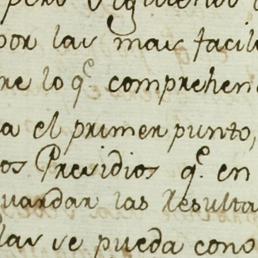 pero siguiendo
por las mas facil
re lo q.^e comprehen
a el primer punto,
os Presidios q.^e en
uardar las resulta
las se pueda cono